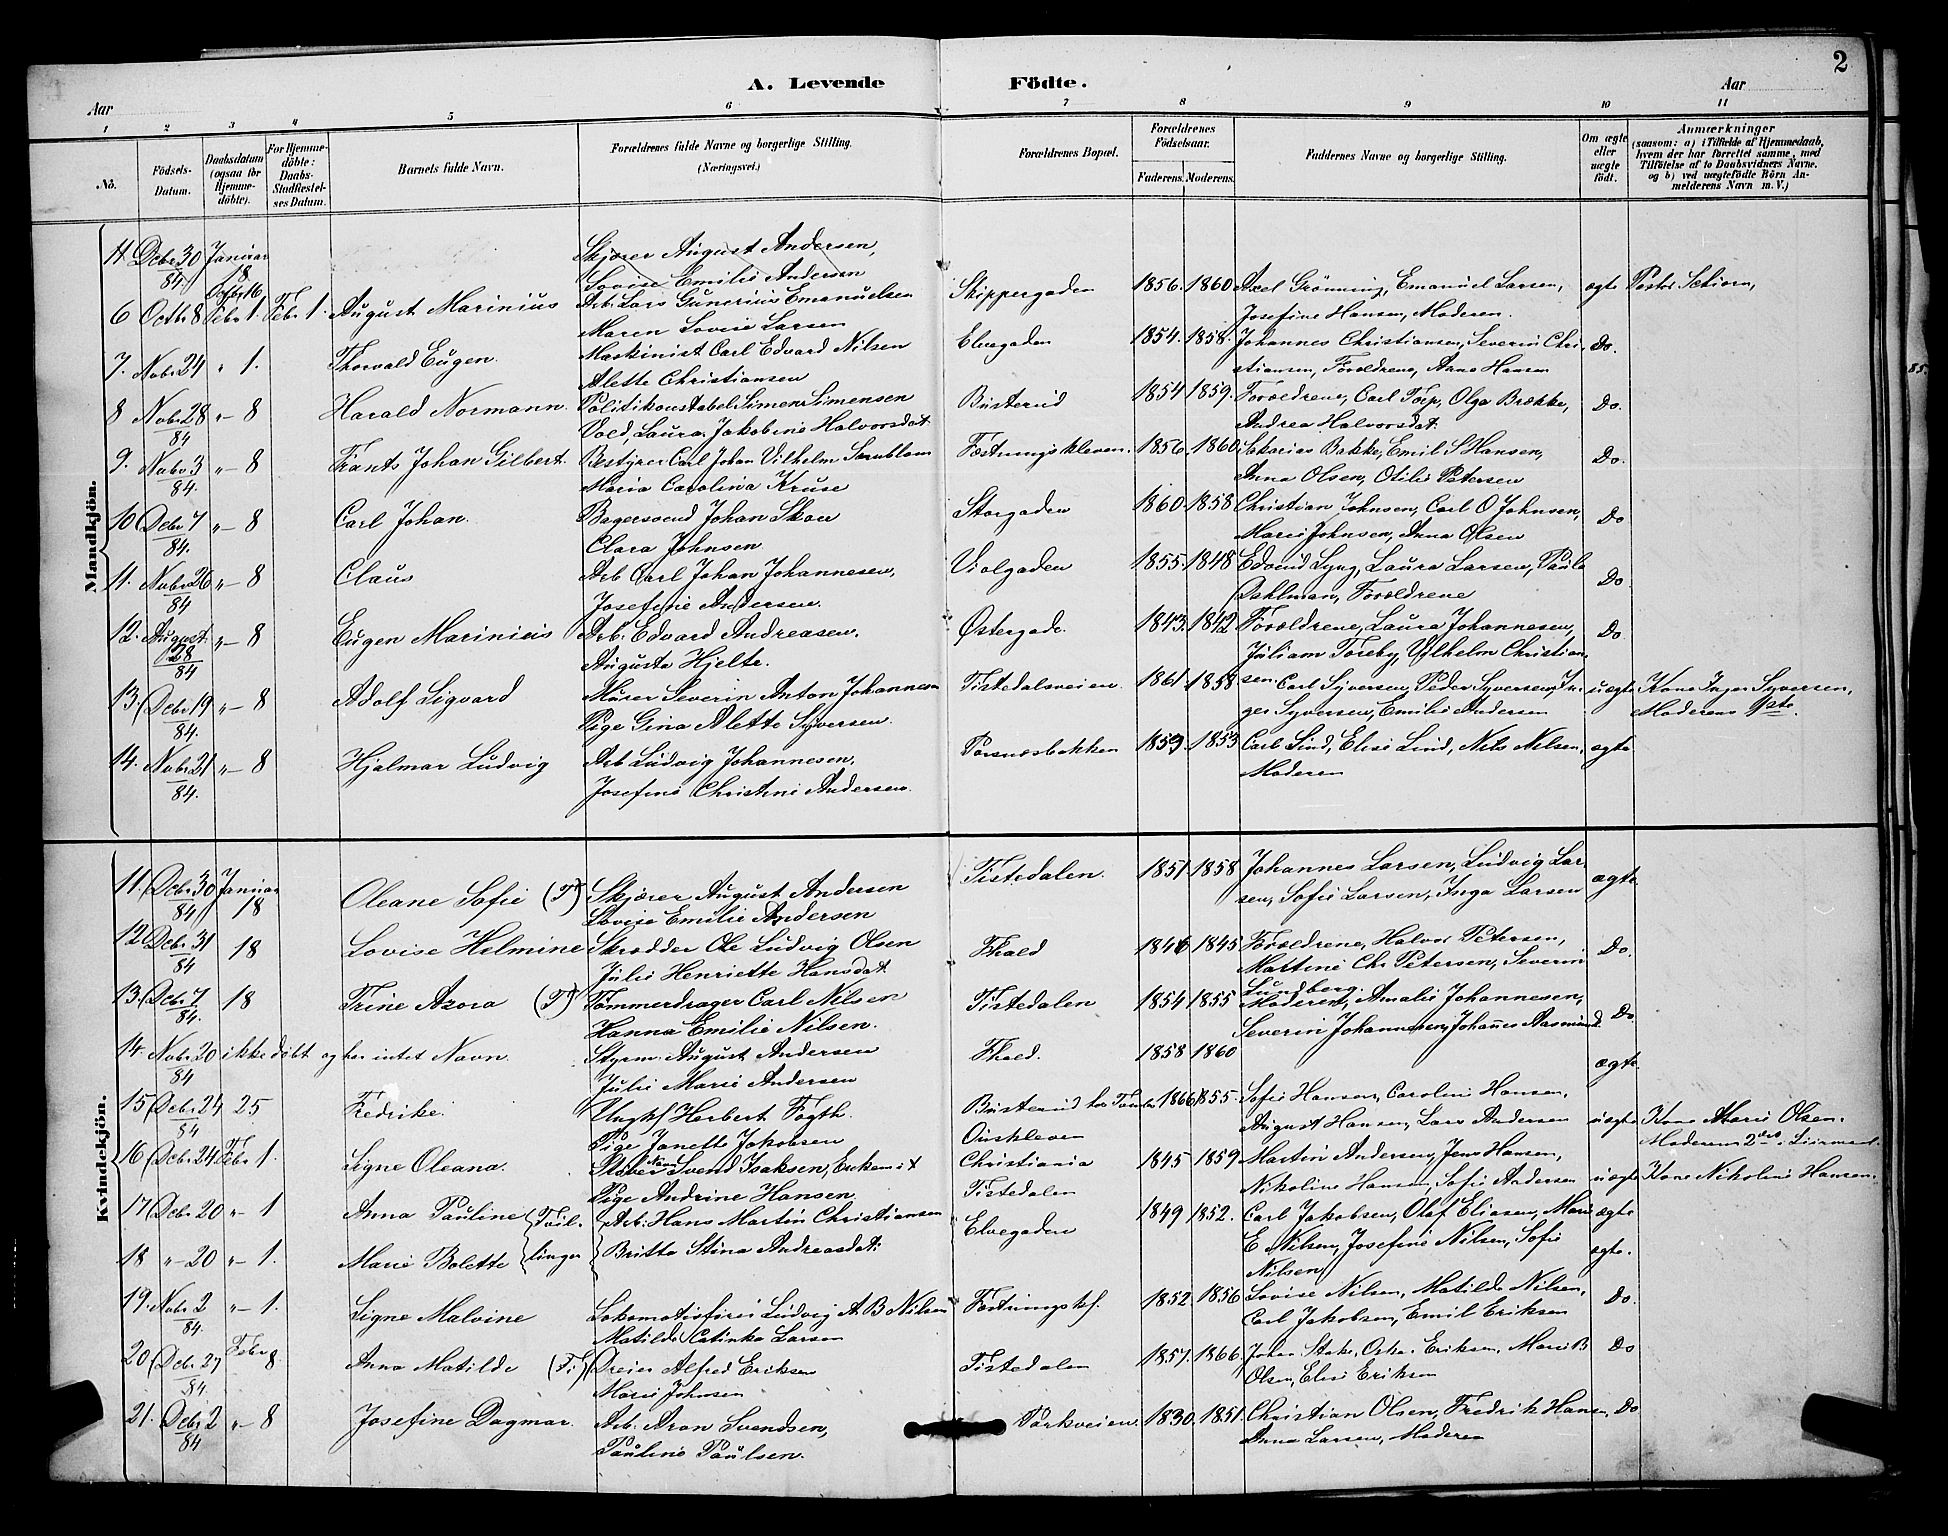 2
A. Levende Födte.
Aar Aar
1 2 3 4 5 6 7 8 9 10 11
No.
Födsels-Datum.
Daabsdatum (ogsaa for Hjemme-döbte).
For Hjemme-döbte: Daabs-Stadfæstel-ses Datum.
Barnets fulde Navn.
Forældrenes fulde Navne og borgerlige Stilling. (Næringsvei.)
Forældrenes Bopæl.
Forældrenes Födselsaar.
Faderens. Moderens.
Faddernes Navne og borgerlige Stilling.
Om ægte eller uægte födt.
Anmærkninger
(saasom: a) i Tilfælde af Hjemmedaab, hvem der har forrettet samme, med Tilföielse af to Daabsvidners Navne. og b) ved uægtefödte Börn An-melderens Navn m. V.)
Mandkjön.
11. Decbr 30 84 Januar 18 Skjærer August Andersen,
Lovise Emilie Andersen
6 Octbr 8 Octbr 16 Febr 1. Febr 1. August Marinius Arb. Lars Gunerius Emanuelsen Skippergaden 1856. 1860 Axel Grönning, Emanuel Larsen, ægte Pastor
Maren Lovise Larsen Josefine Hansen, Moderen.
7. Novbr 24 „ 1. Thorvald Eugen. Maskinist Carl Edvard Nilsen Elvegaden 1854. 1858. Johannes Christiansen, Severin Chri- Do.
Alette Christiansen stiansen, Forældrene, Anne Hansen
8 Novbr 28 84 „ 8 Harald Normann. Politikonstabel Simen Simensen Busterud 1854 1859. Forældrene, Carl Torp, Olga Brække, Do.
Vold, Laura Jakobine Halvorsdat. Andrea Halvorsdat.
9. Novbr 3 84. „ 8 Frants Johan Gilbert. Bestyrer Carl Johan Vilhelm Fæstningskleven. 1856. 1860 Sakarias Bakke, Emil S Hansen, Do.
Maria Carolina Kruse Anna Olsen, Otilie Petersen
10 Decbr 7 84. „ 8 Carl Johan. Bagersvend Johan Skaer Storgaden 1860. 1858 Christian Johnsen, Carl O Johnsen, Do
Clara Johnsen Marie Johnsen, Anna Olsen
11. Novbr 26 84 „ 8 Claus Arb Carl Johan Johannesen, Violgaden 1855. 1848 Edvind Lyng, Laura Larsen, Paule Do.
Josefine Andersen. Dahlman, Forældrene
12. August 28 84 „ 8 Eugen Marinius Arb. Edvard Andreasen. Østergade. 1843. 1842 Forældrene, Laura Johannesen, Do
Augusta Hjelte. Juliam Toseby, Vilhelm Christian-
13. Decbr 19 84. „ 8 Adolf Sigvard Murer Severin Anton Johannesen Tistedalsveien. 1861. 1858 sen. Carl Syversen, Peder Syversen, In- uægte Kone Inger Syversen,
Pige Gina Alette Syversen. ger Syversen, Emilie Andersen Moderens 1ste.
14. Novbr 21 84. „ 8 Hjalmar Ludvig Arb Ludvig Johannesen, Porsnæsbakken 1853. 1853 Carl Lind, Elise Lind, Nils Nilsen, ægte
Josefine Christine Andersen. Moderen
Kvindekjön.
11. Decbr 30 84 Januar 18 Oleane Sofie (T) Skjærer August Andersen Tistedalen. 1851. 1858 Johannes Larsen, Ludvig Lar- ægte.
Lovise Emilie Andersen sen, Sofie Larsen, Inga Larsen
12 Decbr 31 84 18 Lovise Helmine Skrædder Ole Ludvig Olsen Fhald 1846 1845 Forældrene, Halvor Petersen, Do.
Julie Henriette Hansdat. Martine Chr Petersen, Severin Lundberg.
13. Decbr 7 84. 18 Trine Azora (T) Tömmerdrager Carl Nilsen Tistedalen 1854 1855 Moderen, Amalie Johannesen, Do
Hanna Emilie Nilsen. Severin Johannesen, Johannes Aasmund.
14. Novbr 20 84 ikke döbt og har intet Navn. Styrm. August Andersen Fhald. 1858 1860 ægte.
Julie Marie Andersen
15 Decbr 24 84 25 Fredrike. Ungkf Herbert Fogth. Busterud 1866 1855. Sofie Hansen, Caroline Hansen, uægte Kone Marie Olsen.
Pige Janette Jakobsen August Hansen, Lars Andersen Moderens 2det
16 Decbr 24 Febr 1. Signe Oleana. Svend Isaksen, Enkem. Christiania 1845 1859 Martin Andersen, Jens Hansen, uægte Kone Nikoline Hansen.
Pige Andrine Hansen. Tistedalen Nikoline Hansen, Sofie Andersen
17 Decbr 20 „ 1 Anna Pauline { Tvil- Arb. Hans Martin Christiansen Elvegaden 1849 1852. Carl Jakobsen, Olaf Eliasen, Marie ægte
18 „ 20 „ 1. Marie Bolette { linger Britta Stina Andreasdat. E Nilsen, Josefine Nilsen, Sofie Nilsen, ægte.
19. Novbr 2 84. „ 1. Signe Malvine Lokomotivfirer Ludvig A. B Nilsen Fæstningskl. 1852 1856 Lovise Nilsen, Matilde Nilsen, Do.
Matilde Catinka Larsen Carl Jakobsen, Emil Eriksen
20 Decbr 27 84. Febr 8. Anna Matilde (Ti) Dreier Alfred Eriksen Tistedalen 1857. 1866. Johan Stake, Oskar Eriksen, Marie B Do
Marie Johnsen Olsen, Elise Eriksen
21. Decbr 2 84 „ 8 Josefine Dagmar. Arb. Aron Svendsen, Parkveien. 1830. 1851. Christian Olsen, Fredrik Hansen Do
Pauline Paulsen. Anna Larsen, Moderen
85.